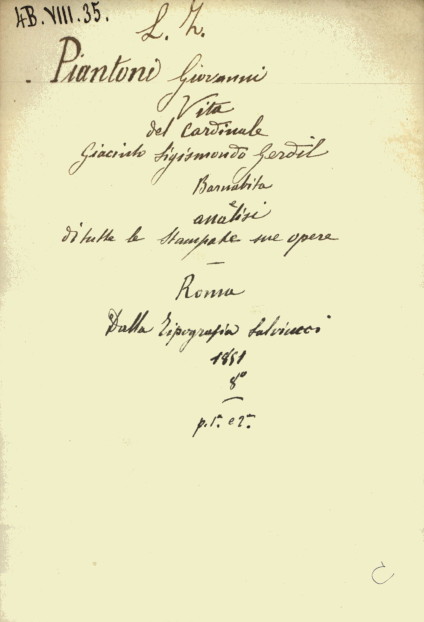 4B.VIII.35.
L. Z.
Piantoni Giovanni
Vita
del Cardinale
Giacinto Sigismondo Gerdil
Barnabita
e
analisi
di tutte le stampate sue opere
Roma
Dalla Tipografia Salviucci
1851
8º
p. 1ª e 2ª.
C